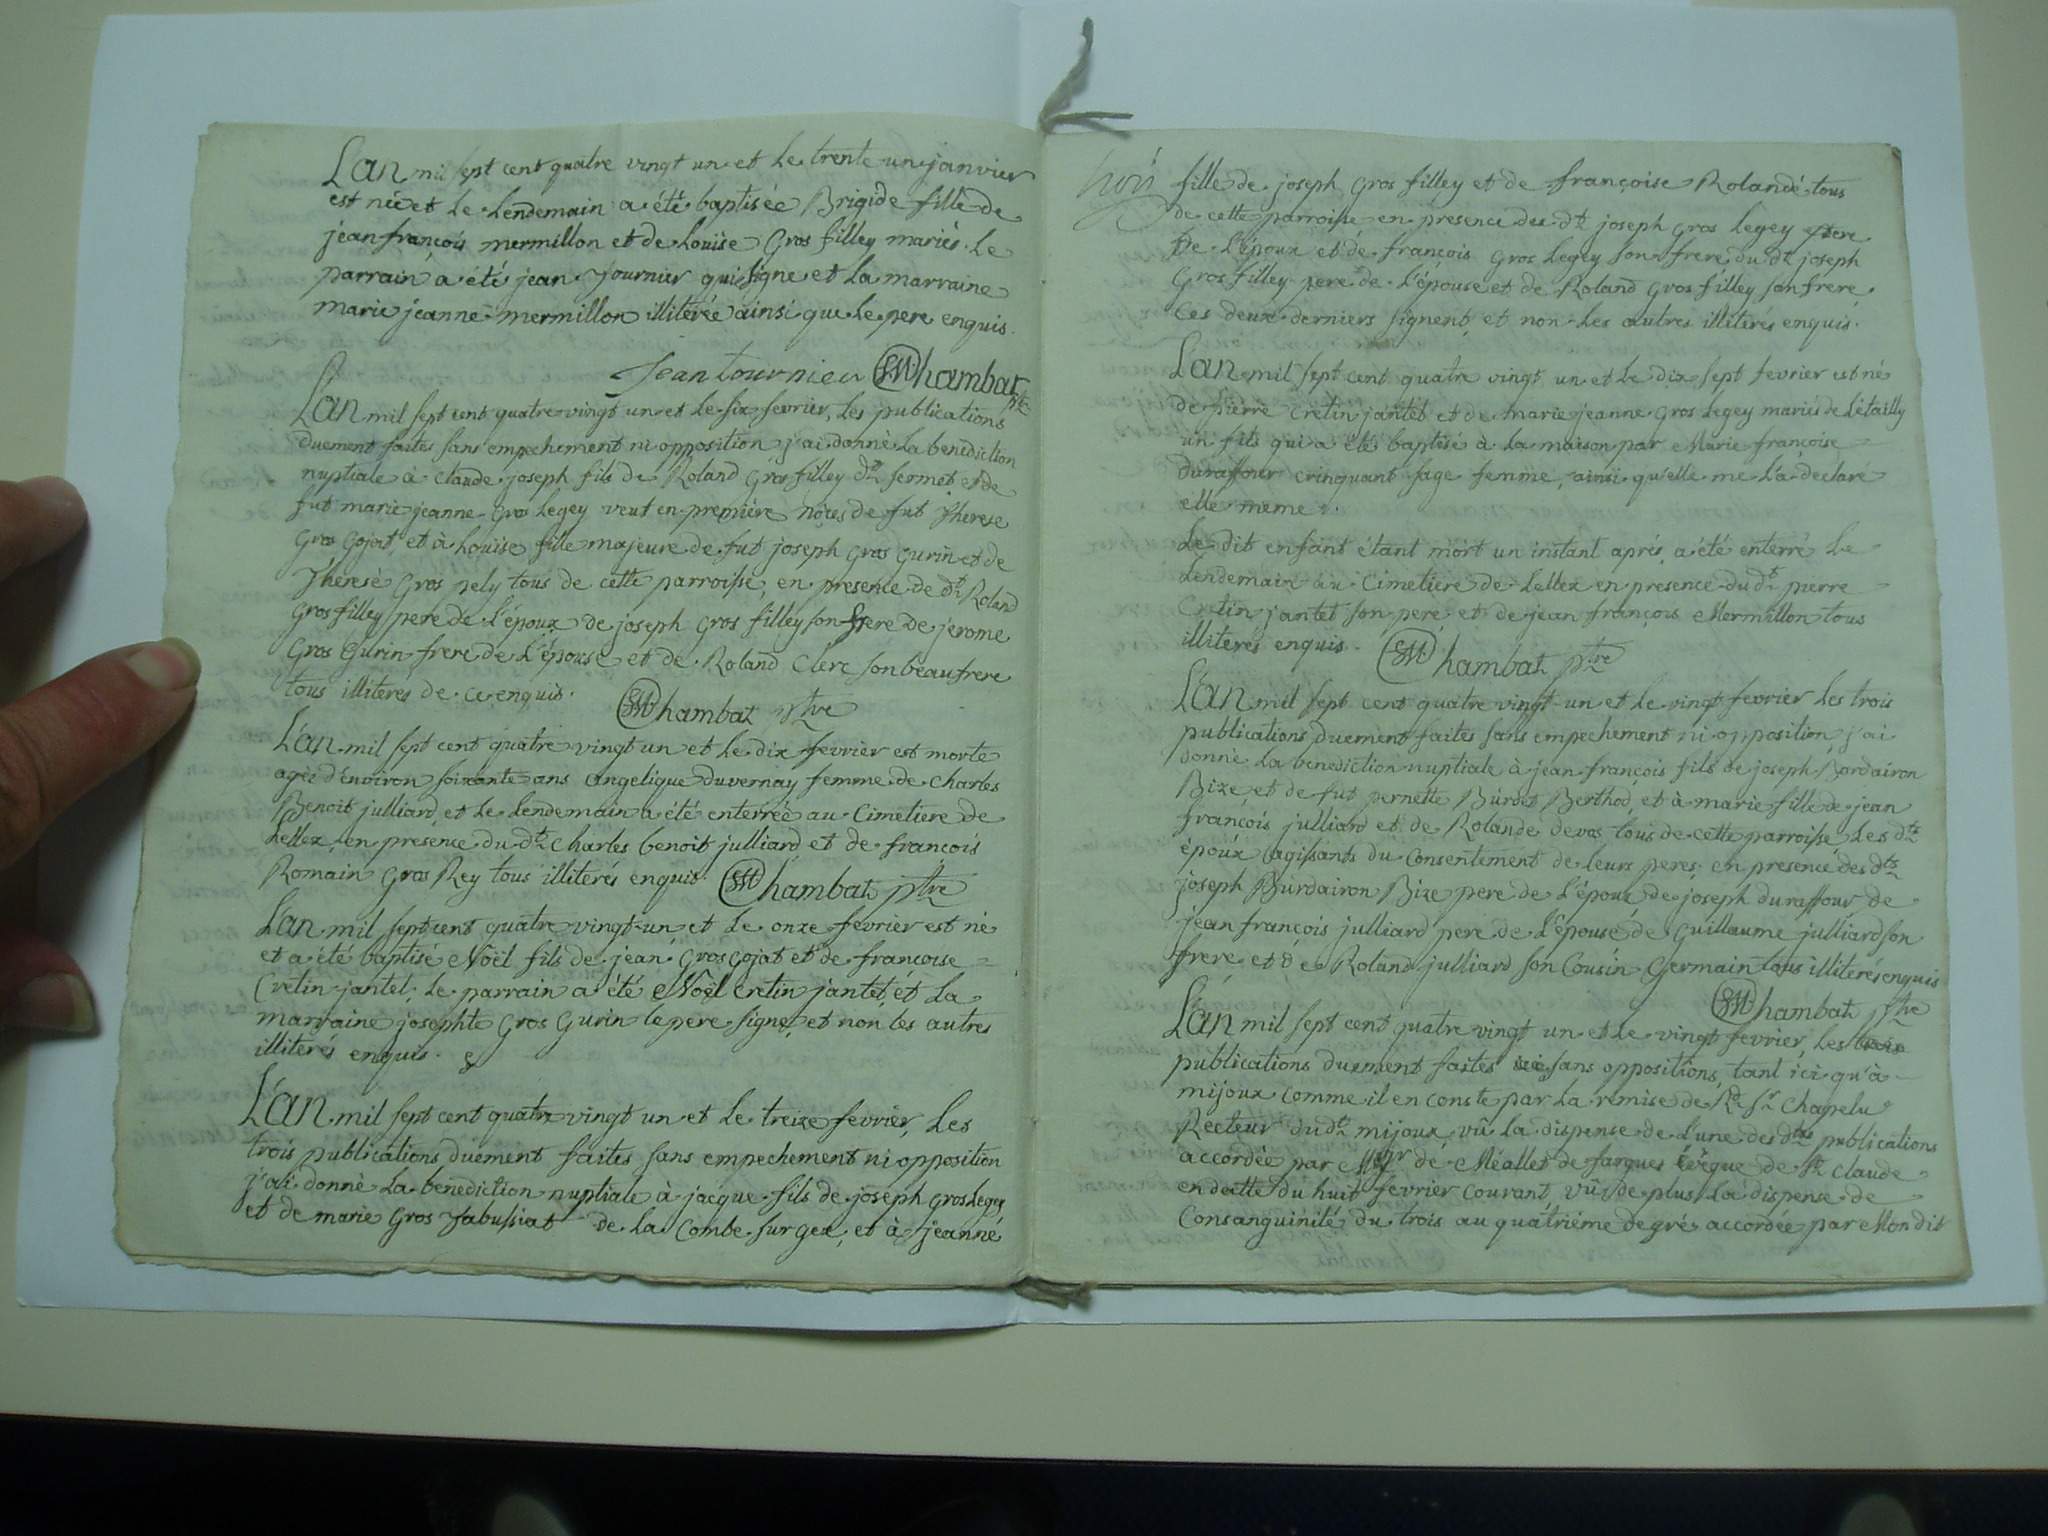 L'an mil sept cent quatre vingt un et le trente un janvier
est née et le lendemain a été baptisée Brigide fille de
jean françois mermillon et de Louise Gros filley mariés. le
parrain a été jean Tournier qui signe et la marraine
marie jeanne mermillon illiterée ainsi que le pere enquis.
Jean tournier Chambat ptre
L'an mil sept cent quatre vingt un et le six fevrier, les publications
duement faites sans empechement ni opposition j'ai donné la benediction
nuptiale à claude joseph fils de Roland Gros filley dt fermet et de
fut marie jeanne Gros legey veuf en premiere noces de fut Therese
Gros Gojat, et à Louise fille majeure de fut joseph Gros Gurin et de
Therese Gros pely tous de cette parroisse, en presence de dt Roland
Gros filley pere de l'époux de joseph Gros filley son frere de jerome
Gros Gurin frere de l'épouse et de Roland Clerc son beau frere
tous illiteres de ce enquis. Chambat ptre
L'an mil sept cent quatre vingt un et le dix fevrier est morte
agée d'environ soixante ans angelique duvernay femme de charles
Benoit julliard et le lendemain a été enterrée au Cimetiere de
Lellex en presence du dt Charles benoit julliard et de françois
Romain Gros Rey tous illiterés enquis. Chambat ptre
L'an mil sept cent quatre vingt un et le onze fevrier est né
et a été baptisé Noël fils de jean Gros gojat et de françoise
Cretin jantet, le parrain a été Noël cretin jantet, et la
marraine josephte Gros Gurin le pere signe, et non les autres
illiterés enquis.
L'an mil sept cent quatre vingt un et le treize fevrier, les
trois publications duement faites sans empechement ni opposition
j'ai donné la benediction nuptiale à jacque fils de joseph Gros legey
et de marie Gros Tabussiat de la Combe sur gex, et à jeanne
fille de joseph Gros filley et de françoise Rolande tous
de cette parroisse en presence des dt joseph Gros legey pere
de l'époux et de françois Gros legey son frere du dt joseph
Gros filley pere de l'épouse et de Roland Gros filley son frere
Ces deux derniers signent, et non les autres illiterés enquis.
L'an mil sept cent quatre vingt un et le dix sept fevrier est né
de pierre Cretin jantet et de marie jeanne Gros legey mariés de l'étailly
un fils qui a été baptisé à la maison par Marie françoise
duraffour crinquant sage femme, ainsi qu'elle me l'a declaré
elle meme.
Le dit enfant étant mort un instant aprés, a été enterré le
lendemain au Cimetiere de Lellex en presence du dt pierre
Cretin jantet son pere et de jean françois Mermillon tous
illiterés enquis. Chambat ptre
L'an mil sept cent quatre vingt un et le vingt fevrier les trois
publications duement faites sans empechement ni opposition j'ai
donné la benediction nuptiale à jean françois fils de joseph Bordairon
Bize et de fut pernette Burdet Berthod, et à marie fille de jean
françois julliard et de Rolande devos tous de cette parroisse les dts
époux agissants du consentement de leurs peres, en presence des dts
joseph Burdairon Bize pere de l'époux de joseph duraffour de
jean françois julliard pere de l'épouse de Guillaume julliard son
frere et de Roland julliard son Cousin Germain tous illiterés enquis
Chambat ptre
L'an mil sept cent quatre vingt un et le vingt fevrier, les trois
publications duement faites sans oppositions, tant ici qu'à
mijoux comme il en conste par la remise de Rd Sr Chapelu
Recteur du dt mijoux, vû la dispense de l'une des dtes publications
accordée par Mgr de Méallet de fargues évêque de St Claude
en datte du huit fevrier courant, vû de plus la dispense de
Consanguinité du trois au quatriéme degré accordée par Mon dit